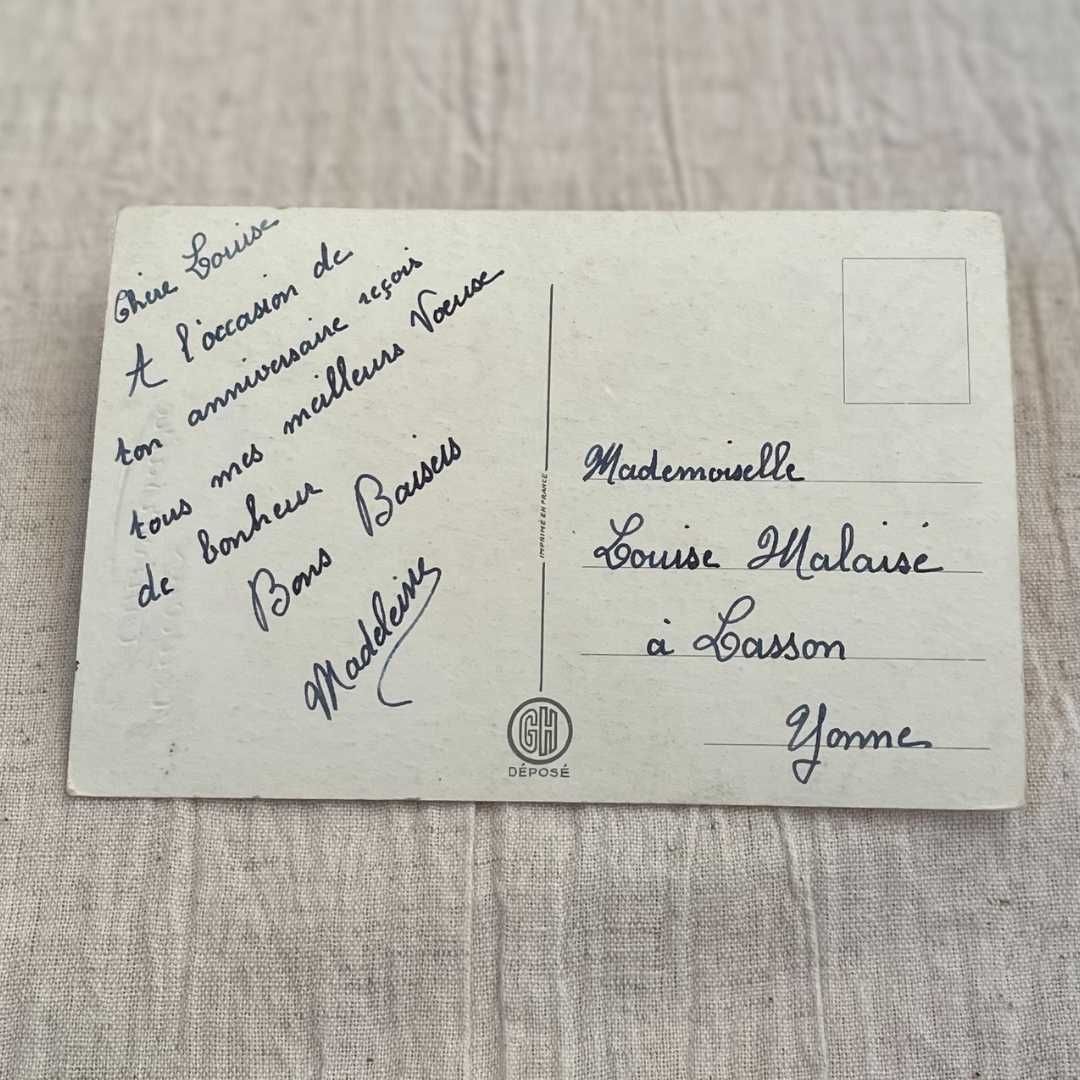 Chère Louise
A l'occasion de
ton anniversaire reçois
tous mes meilleurs Voeux
de bonheur
Bons Baisers
Madeleine
IMPRIMÉ EN FRANCE
GH
DÉPOSÉ
Mademoiselle
Louise Malaisé
à Lasson
Yonne